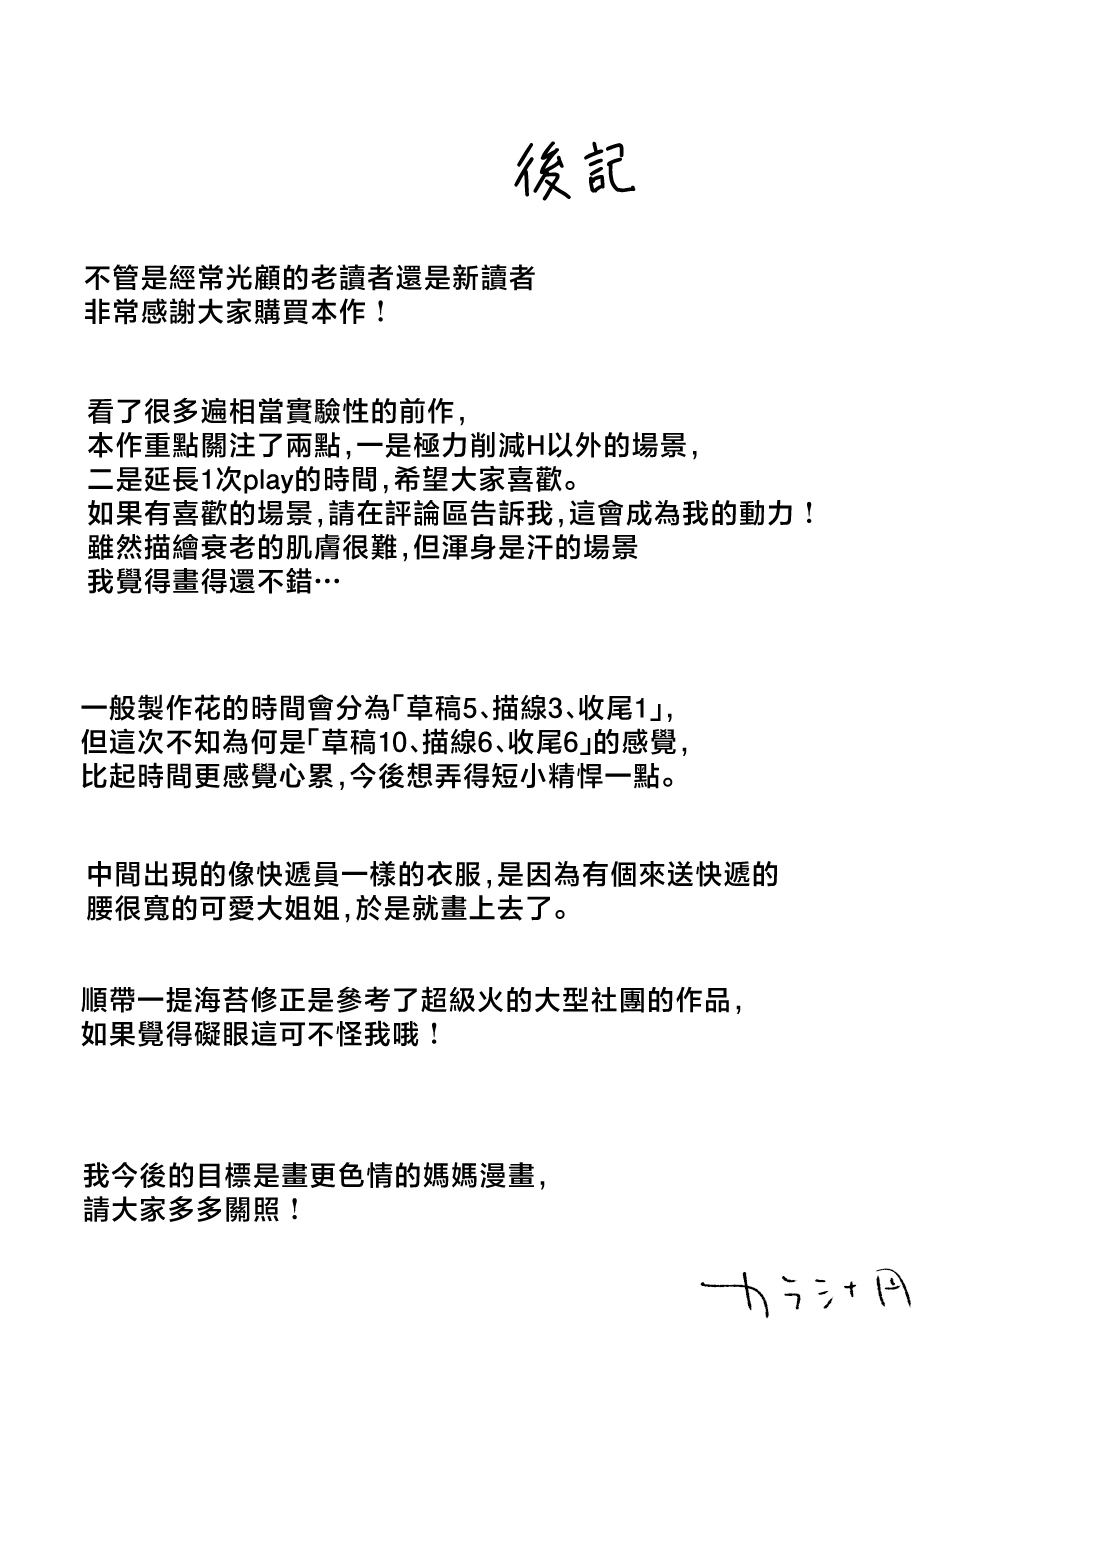 後記
不管是經常光顧的老讀者還是新讀者
非常感謝大家購買本作！
看了很多遍相當實驗性的前作，
本作重點關注了兩點，一是極力削減H以外的場景，
二是延長1次play的時間，希望大家喜歡。
如果有喜歡的場景，請在評論區告訴我，這會成為我的動力！
雖然描繪衰老的肌膚很難，但渾身是汗的場景
我覺得畫得還不錯…
一般製作花的時間會分為「草稿5、描線3、收尾1」，
但這次不知為何是「草稿10、描線6、收尾6」的感覺，
比起時間更感覺心累，今後想弄得短小精悍一點。
中間出現的像快遞員一樣的衣服，是因為有個來送快遞的
腰很寬的可愛大姐姐，於是就畫上去了。
順帶一提海苔修正是參考了超級火的大型社團的作品，
如果覺得礙眼這可不怪我哦！
我今後的目標是畫更色情的媽媽漫畫，
請大家多多關照！